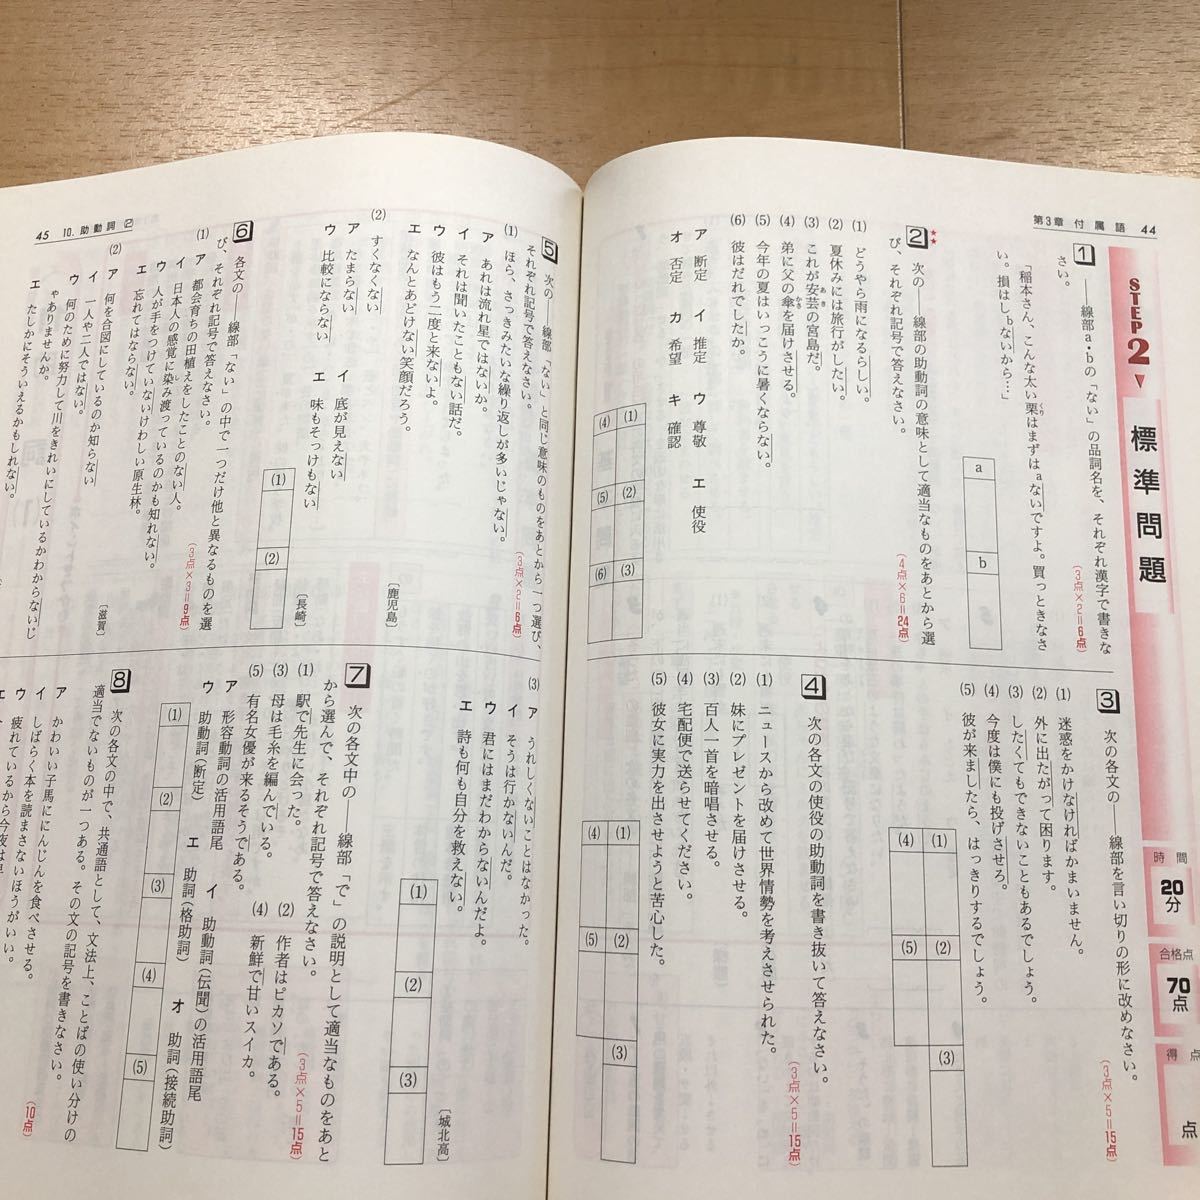 第3章 付属語 44
STEP 2
標準問題
時間
20分
合格点
70点
得点
点
1 ――線部a・bの「ない」の品詞名を、それぞれ漢字で書きな
さい。
(3点×2=6点)
「稲本さん、こんな太い栗はまずはaないですよ。買っときなさ
い。損はしbないから…」
くり
a
b
2 次の――線部の助動詞の意味として適当なものをあとから選
び、それぞれ記号で答えなさい。
(4点×6=24点)
(1) どうやら雨になるらしい。
(2) 夏休みには旅行がしたい。
(3) これが安芸の宮島だ。
あき
(4) 弟に父の傘を届けさせる。
かさ
(5) 今年の夏はいっこうに暑くならない。
(6) 彼はだれでしたか。
ア 断定 イ 推定 ウ 尊敬 エ 使役
オ 否定 カ 希望 キ 確認
(1)
(2)
(3)
(4)
(5)
(6)
3 次の各文の――線部を言い切りの形に改めなさい。
(3点×5=15点)
(1) 迷惑をかけなければかまいません。
(2) 外に出たがって困ります。
(3) したくてもできないこともあるでしょう。
(4) 今度は僕にも投げさせろ。
(5) 彼が来ましたら、はっきりするでしょう。
(1)
(2)
(3)
(4)
(5)
4 次の各文の使役の助動詞を書き抜いて答えなさい。
(3点×5=15点)
(1) ニュースから改めて世界情勢を考えさせられた。
(2) 妹にプレゼントを届けさせる。
(3) 百人一首を暗唱させる。
(4) 宅配便で送らせてください。
(5) 彼女に実力を出させようと苦心した。
(1)
(2)
(3)
(4)
(5)
45 10. 助動詞 2
5 次の――線部「ない」と同じ意味のものをあとから一つ選び、
それぞれ記号で答えなさい。
(3点×2=6点)
(1) ほら、さっきみたいな繰り返しが多いじゃない。
ア あれは流れ星ではないか。
イ それは聞いたこともない話だ。
ウ 彼はもう二度と来ないよ。
エ なんとあどけない笑顔だろう。
〔鹿児島〕
(2) すくなくない
ア たまらない イ 底が見えない
ウ 比較にならない エ 味もそっけもない
〔長崎〕
(1)
(2)
6 各文の――線部「ない」の中で一つだけ他と異なるものを選
び、それぞれ記号で答えなさい。
(3点×3=9点)
(1) ア 都会育ちの田植えをしたことのない人。
イ 日本人の感覚に染み渡っているのかも知れない。
し
ウ 人が手をつけていないけわしい原生林。
エ 忘れてはならない。
(2) ア 何を合図にしているのか知らない
イ 一人や二人ではない。
ウ 何のために努力して川をきれいにしているかわからないじ
ゃありませんか。
エ たしかにそういえるかもしれない。
〔滋賀〕
(3) ア うれしくないことはなかった。
イ そうは行かないんだ。
ウ 君にはまだわからないんだよ。
エ 詩も何も自分を救えない。
〔城北高〕
(1)
(2)
(3)
7 次の各文中の――線部「で」の説明として適当なものをあと
から選んで、それぞれ記号で答えなさい。
(3点×5=15点)
(1) 駅で先生に会った。 (2) 作者はピカソである。
(3) 母は毛糸を編んでいる。 (4) 新鮮で甘いスイカ。
(5) 有名女優が来るそうである。
ア 形容動詞の活用語尾 イ 助動詞(伝聞)の活用語尾
ウ 助動詞(断定) エ 助詞(格助詞) オ 助詞(接続助詞)
(1)
(2)
(3)
(4)
(5)
8 次の各文の中で、共通語として、文法上、ことばの使い分けの
適当でないものが一つある。その文の記号を書きなさい。
(10点)
ア かわいい子馬ににんじんを食べさせる。
イ しばらく本を読まさないほうがいい。
ウ 疲れているから今夜は早
エ